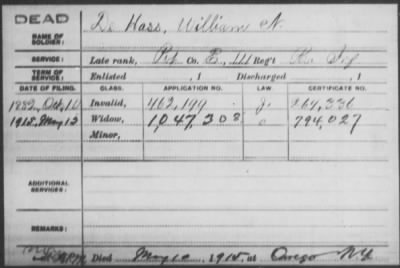 DEAD
NAME OF SOLDIER: De Hass, William N.
SERVICE: Late rank, Pvt Co. E, 111 Reg't
TERM OF SERVICE: Enlisted , 1 Discharged , 1
DATE OF FILING. CLASS. APPLICATION NO. LAW CERTIFICATE NO.
1882, Oct, Invalid, 462,199 264,336
1915, May, 13 Widow, 1,047,308 794,027
Minor,
ADDITIONAL SERVICES:
REMARKS:
Died May 1915, at N.Y.